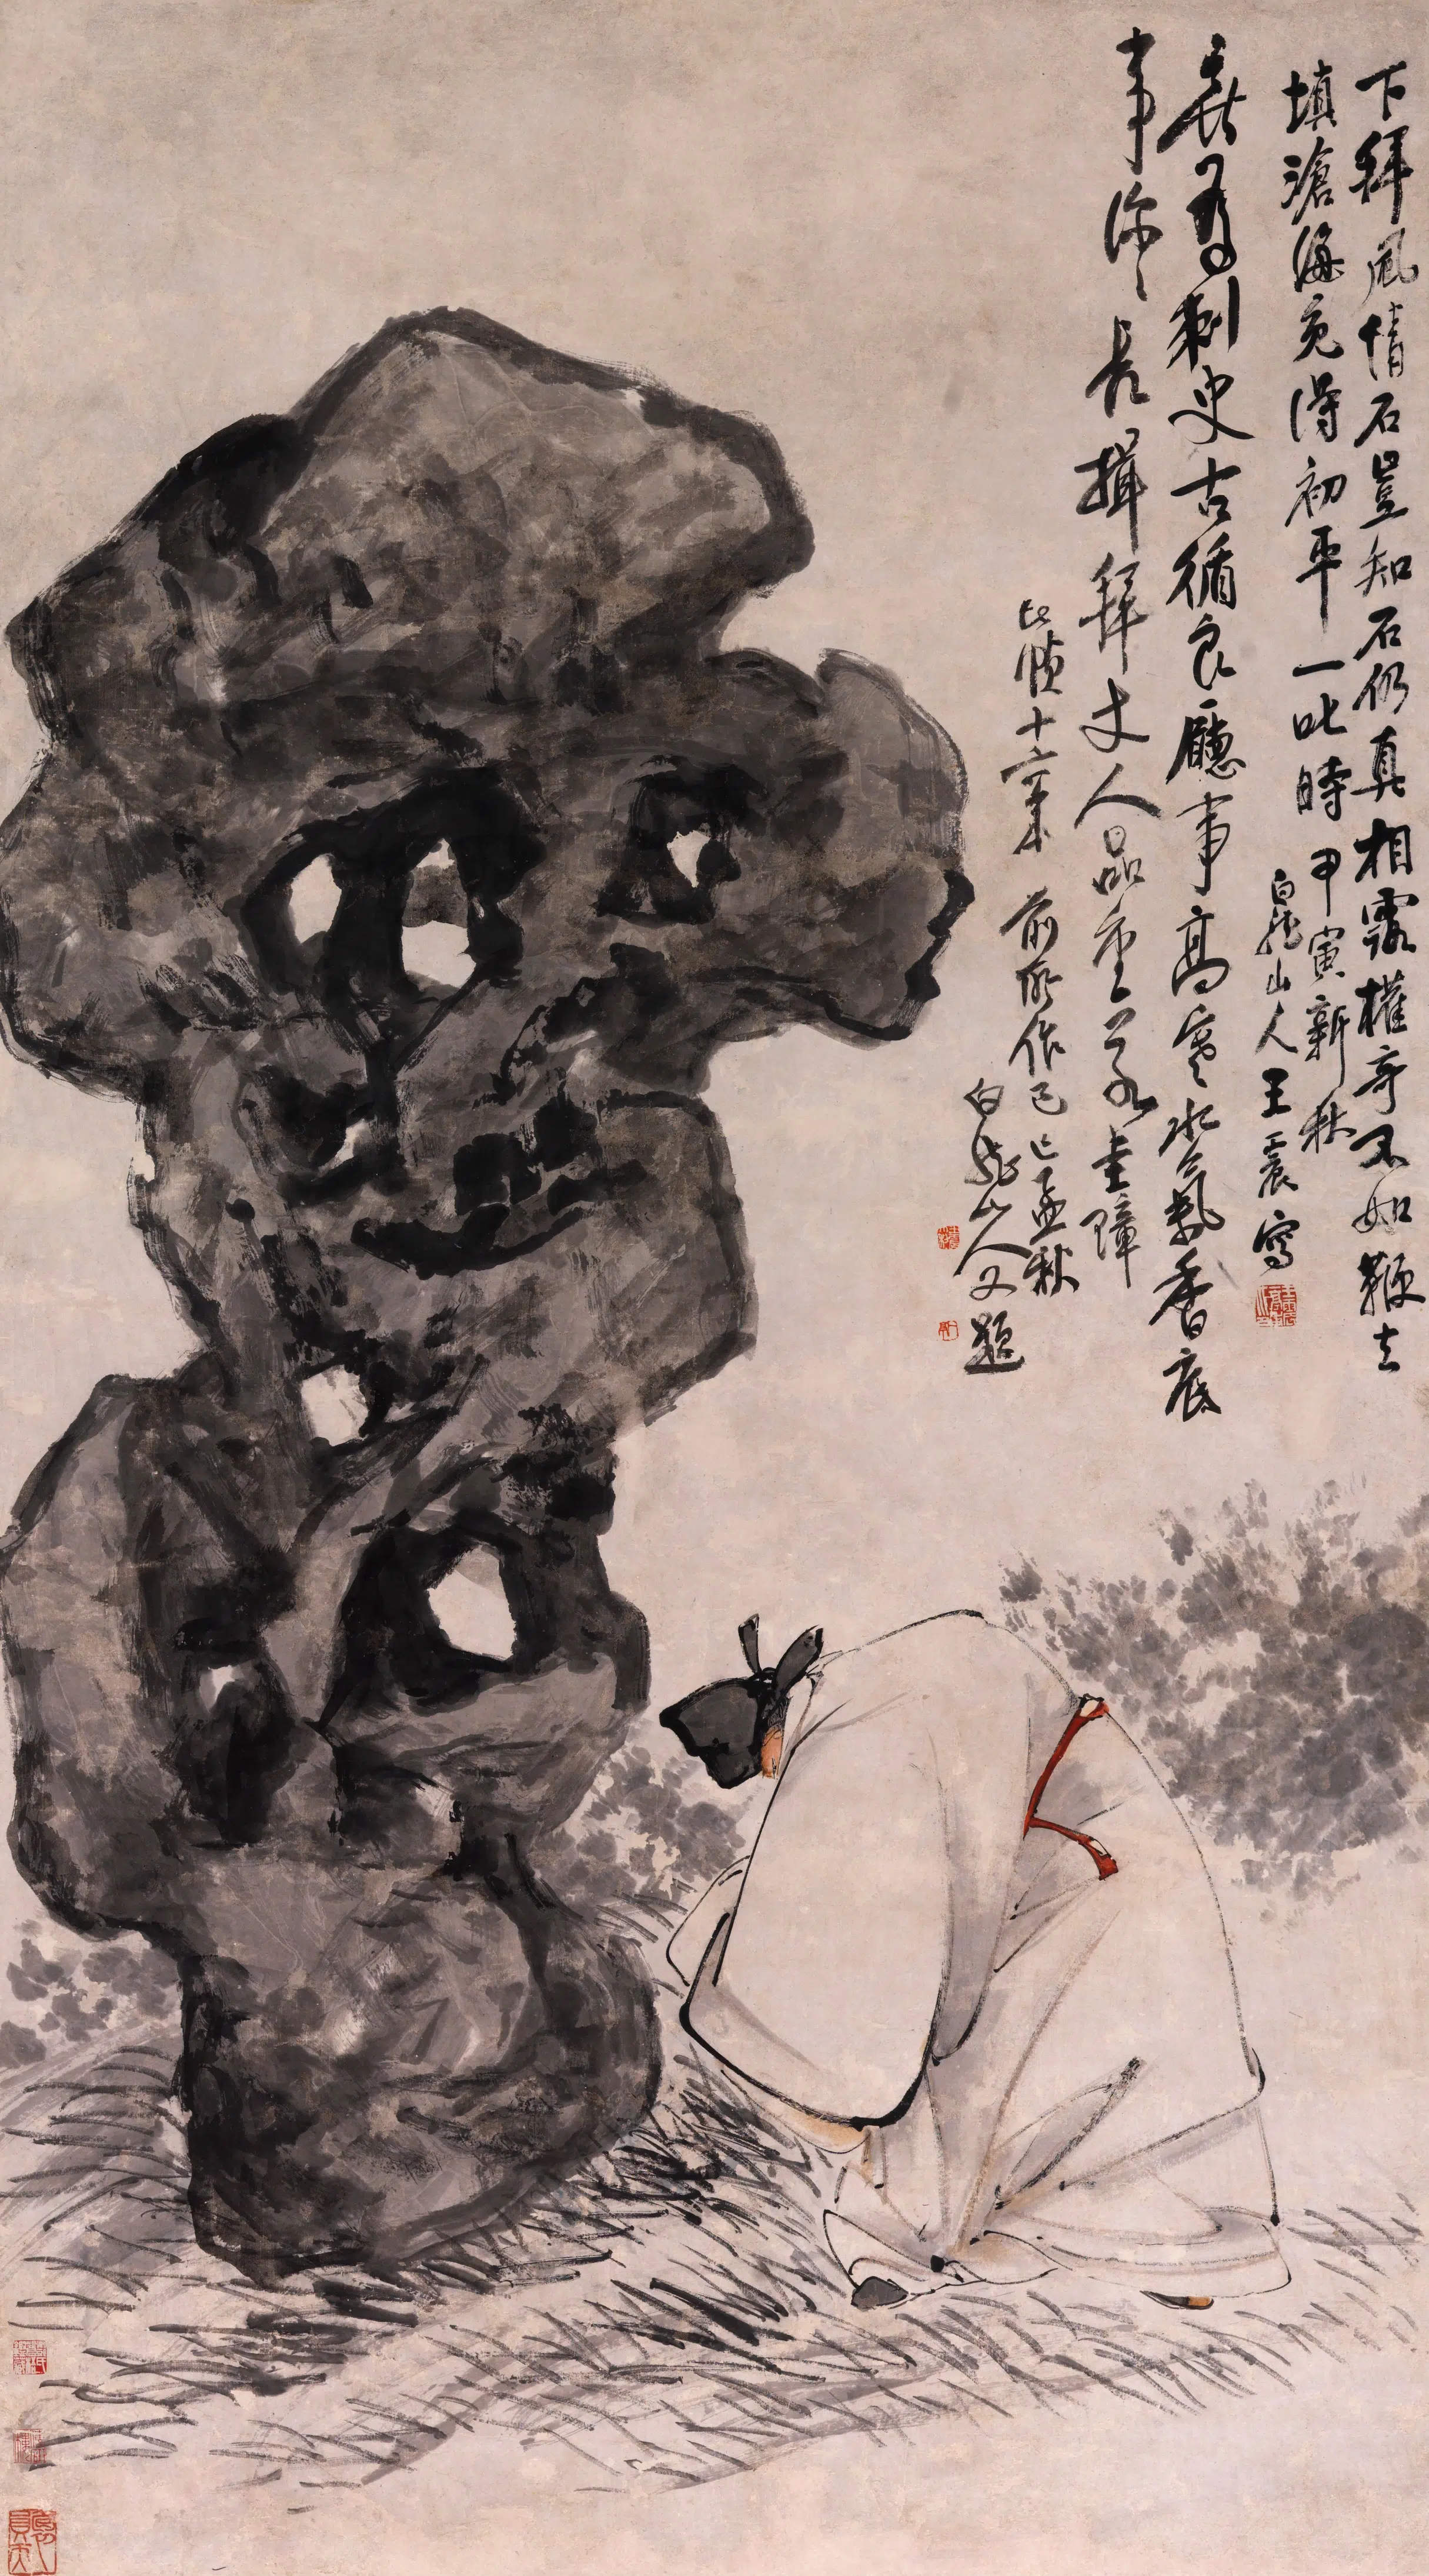 下拜風情石豈知石仍真相露權奇不如鞭去
填滄海宛得初平一叱時 甲寅新秋
白龍山人王震寫
無為刺史古循良廳事高寒水氣香底
事徐徐長揖拜丈人品重若圭璋
此幀十六年前所作己巳孟秋
白龍山人又題